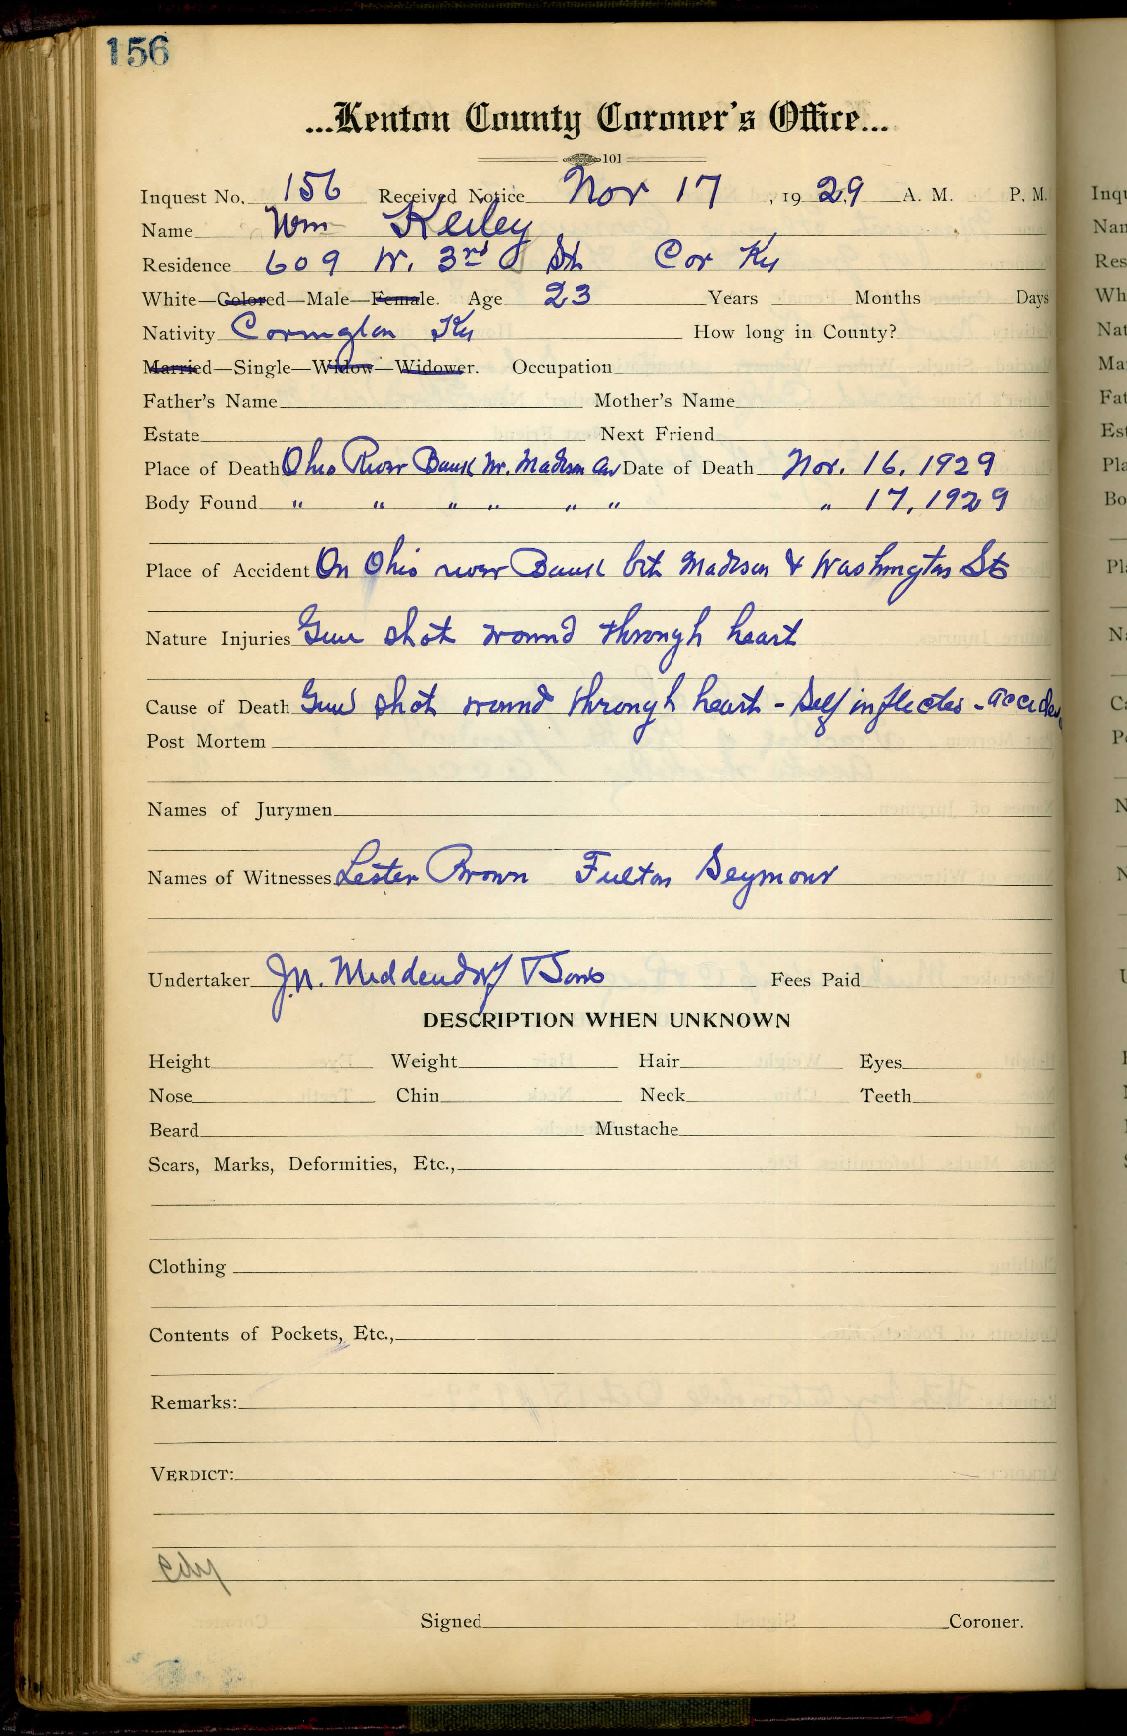 156
...Kenton County Coroner's Office...
101
Inquest No. 156 Received Notice Nov 17, 1929 A. M. P. M.
Name Wm Kerley
Residence 609 W. 3rd St Cov Ky
White—Colored—Male—Female. Age 23 Years Months Days
Nativity Covington Ky How long in County?
Married—Single—Widow—Widower. Occupation
Father's Name Mother's Name
Estate Next Friend
Place of Death Ohio River Bank Nr. Madison Av Date of Death Nov. 16, 1929
Body Found " " " " " " " 17, 1929
Place of Accident On Ohio river Bank bet Madison & Washington Sts
Nature Injuries Gun shot wound through heart
Cause of Death Gun shot wound through heart - Self inflicted - acciden
Post Mortem
Names of Jurymen
Names of Witnesses Lester Brown Fulton Seymour
Undertaker J.N. Middendorf & Sons Fees Paid
DESCRIPTION WHEN UNKNOWN
Height Weight Hair Eyes
Nose Chin Neck Teeth
Beard Mustache
Scars, Marks, Deformities, Etc.,
Clothing
Contents of Pockets, Etc.,
Remarks:
VERDICT:
Signed Coroner.